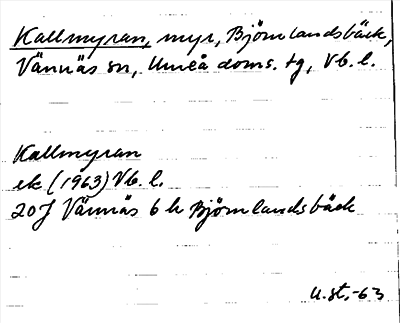 Kallmyran, myr, Björnlandsbäck,
Vännäs sn, Umeå doms. tg, Vb. l.
Kallmyran
ek (1963) Vb. l.
20J Vännäs 6 h Björnlandsbäck
U.st.-63